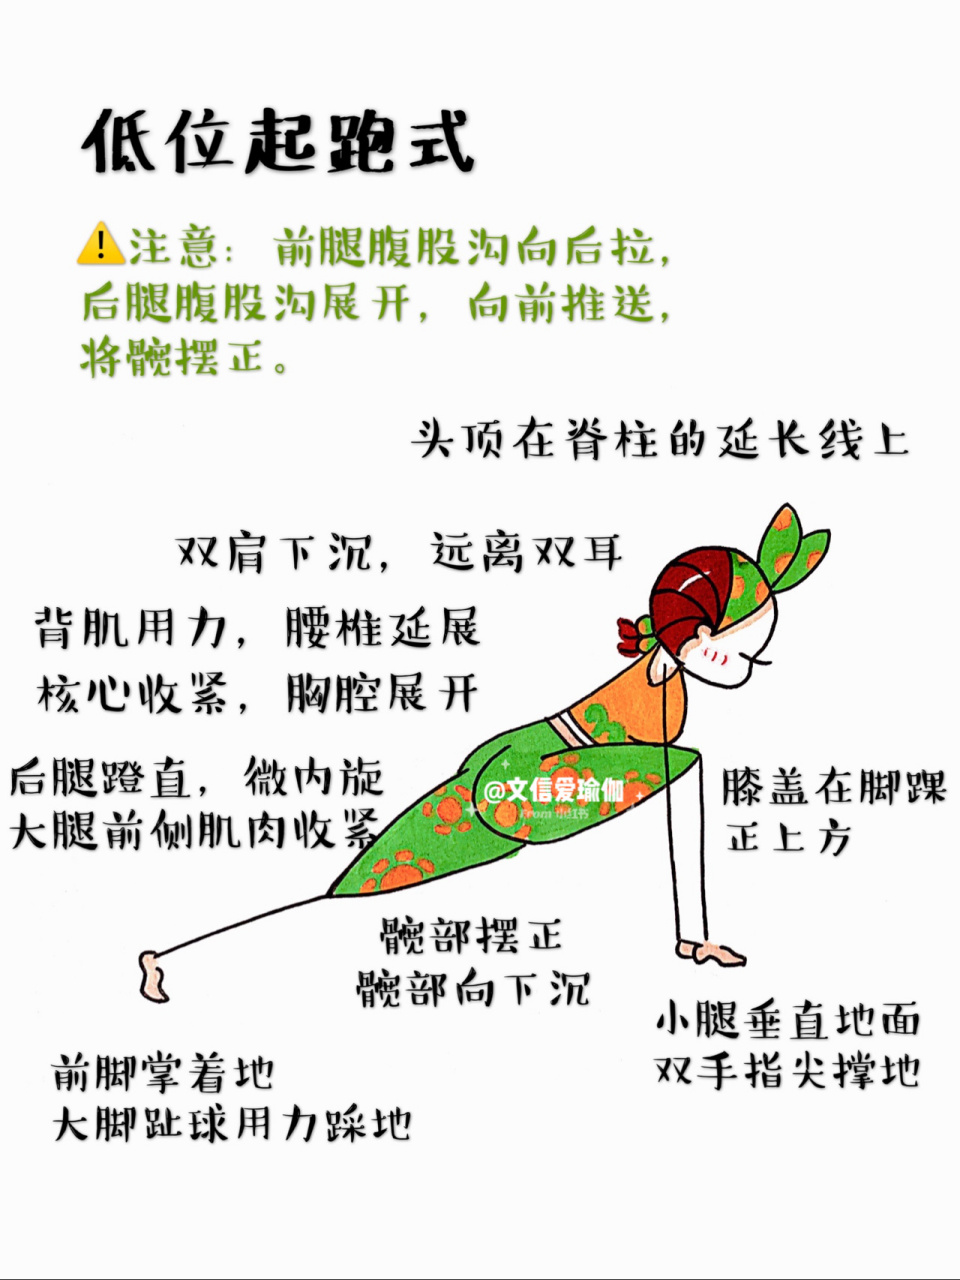 低位起跑式
⚠️注意：前腿腹股沟向后拉，
后腿腹股沟展开，向前推送，
将髋摆正。
头顶在脊柱的延长线上
双肩下沉，远离双耳
背肌用力，腰椎延展
核心收紧，胸腔展开
后腿蹬直，微内旋
大腿前侧肌肉收紧
@文信爱瑜伽
From 小红书
膝盖在脚踝
正上方
髋部摆正
髋部向下沉
小腿垂直地面
双手指尖撑地
前脚掌着地
大脚趾球用力踩地